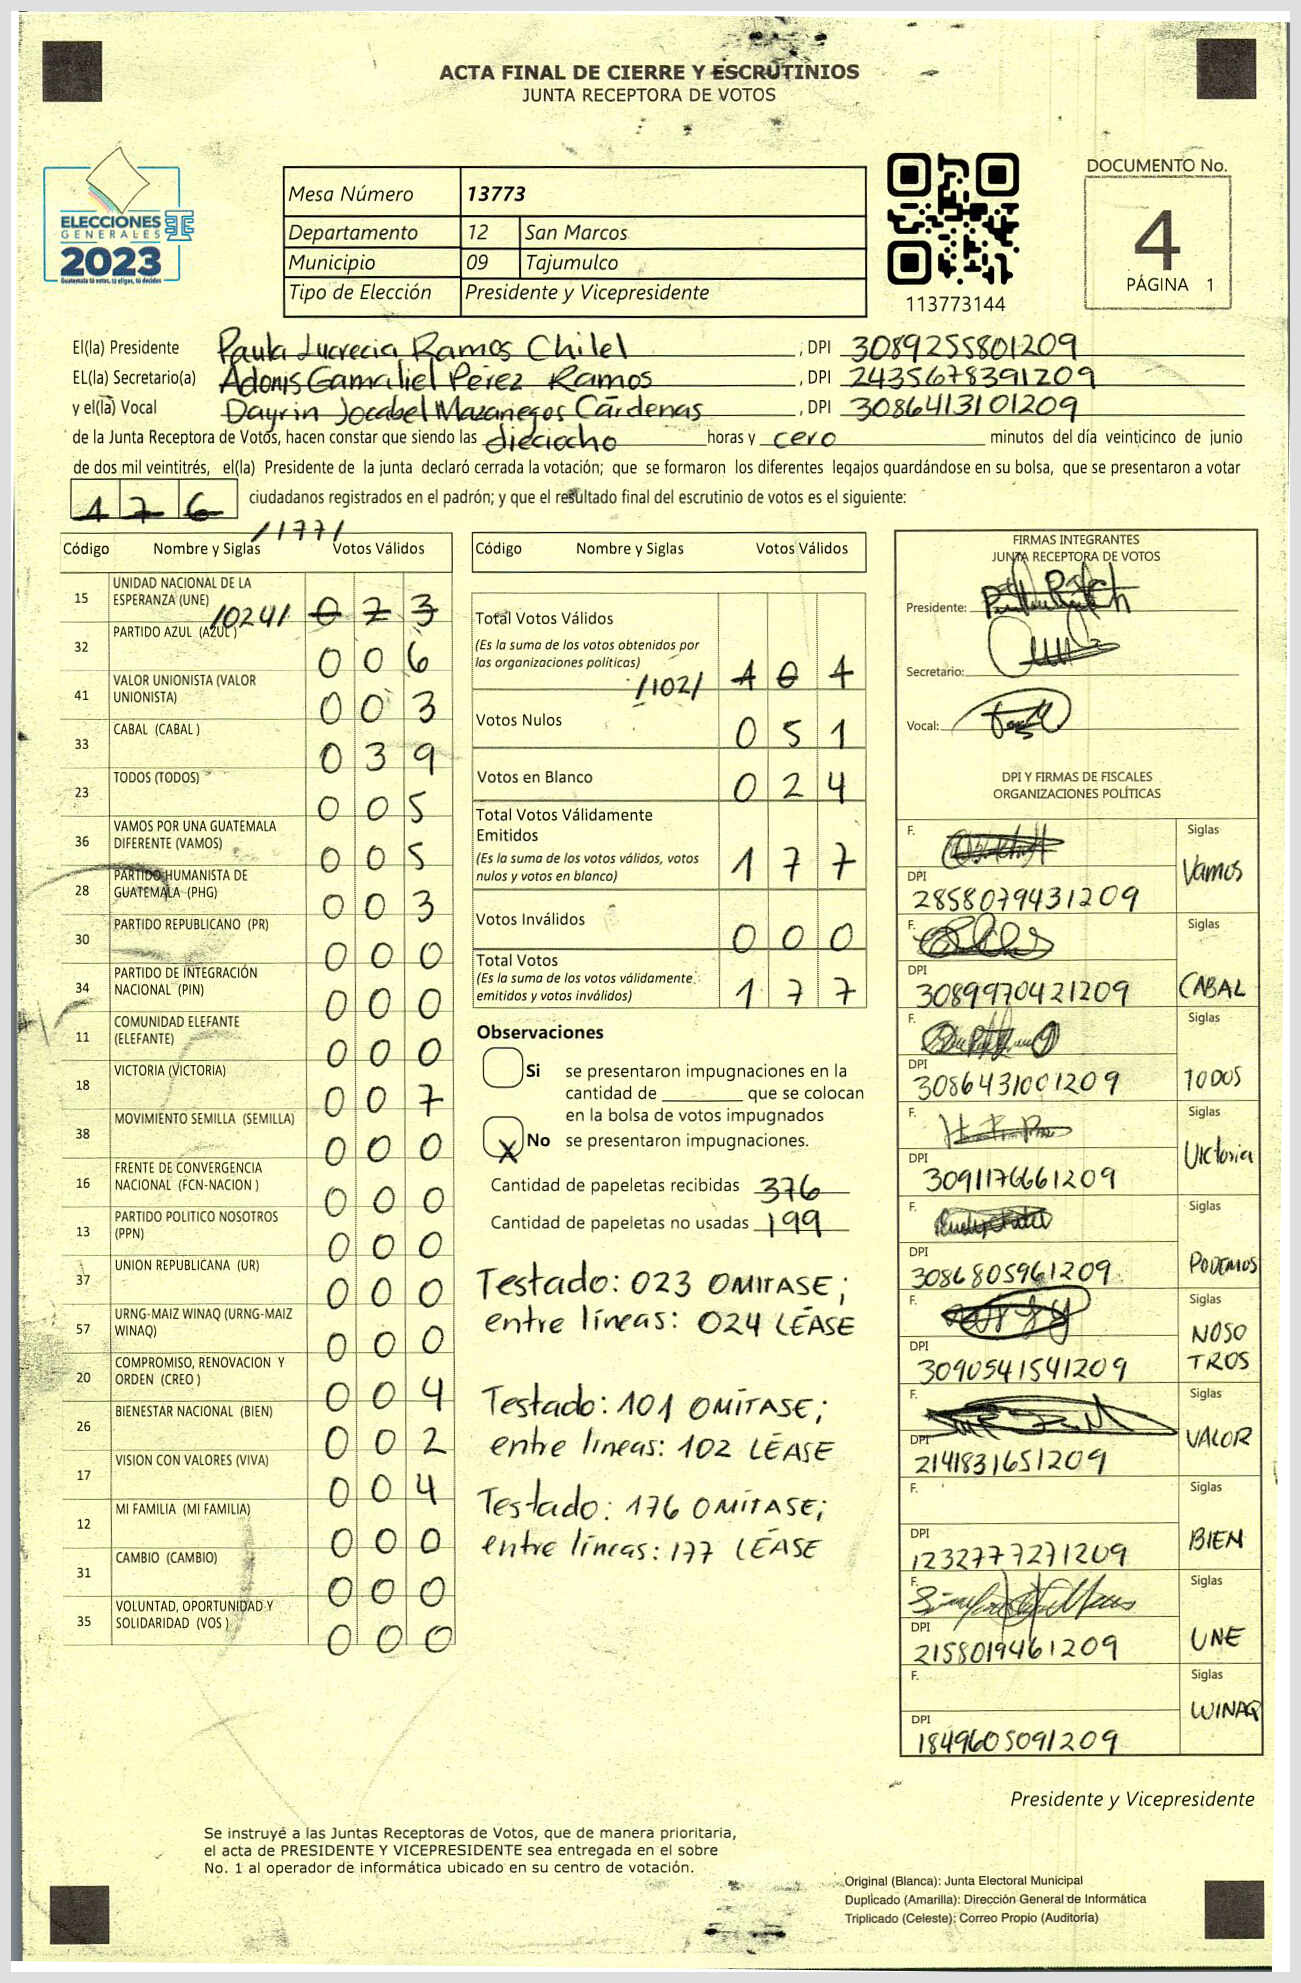 ACTA FINAL DE CIERRE Y ESCRUTINIOS
JUNTA RECEPTORA DE VOTOS
ELECCIONES
GENERALES
2023
Guatemala tú votas, tú eliges, tú decides
Mesa Número 13773
Departamento 12 San Marcos
Municipio 09 Tajumulco
Tipo de Elección Presidente y Vicepresidente
113773144
DOCUMENTO No.
4
PÁGINA 1
El(la) Presidente Paula Lucrecia Ramos Chilel , DPI 3089255801209
EL(la) Secretario(a) Adonis Gamaliel Pérez Ramos , DPI 2435678391209
y el(la) Vocal Dayrin Jocabel Mazariegos Cárdenas , DPI 3086413101209
de la Junta Receptora de Votos, hacen constar que siendo las dieciocho horas y cero minutos del día veinticinco de junio
de dos mil veintitrés, el(la) Presidente de la junta declaró cerrada la votación; que se formaron los diferentes legajos guardándose en su bolsa, que se presentaron a votar
176 ciudadanos registrados en el padrón; y que el resultado final del escrutinio de votos es el siguiente:
/177/
Código Nombre y Siglas Votos Válidos
15 UNIDAD NACIONAL DE LA
ESPERANZA (UNE) /024/ 0 2 3
32 PARTIDO AZUL (AZUL) 0 0 6
41 VALOR UNIONISTA (VALOR
UNIONISTA) 0 0 3
33 CABAL (CABAL ) 0 3 9
23 TODOS (TODOS) 0 0 5
36 VAMOS POR UNA GUATEMALA
DIFERENTE (VAMOS) 0 0 5
28 PARTIDO HUMANISTA DE
GUATEMALA (PHG) 0 0 3
30 PARTIDO REPUBLICANO (PR) 0 0 0
34 PARTIDO DE INTEGRACIÓN
NACIONAL (PIN) 0 0 0
11 COMUNIDAD ELEFANTE
(ELEFANTE) 0 0 0
18 VICTORIA (VICTORIA) 0 0 7
38 MOVIMIENTO SEMILLA (SEMILLA) 0 0 0
16 FRENTE DE CONVERGENCIA
NACIONAL (FCN-NACION ) 0 0 0
13 PARTIDO POLITICO NOSOTROS
(PPN) 0 0 0
37 UNION REPUBLICANA (UR) 0 0 0
57 URNG-MAIZ WINAQ (URNG-MAIZ
WINAQ) 0 0 0
20 COMPROMISO, RENOVACION Y
ORDEN (CREO ) 0 0 4
26 BIENESTAR NACIONAL (BIEN) 0 0 2
17 VISION CON VALORES (VIVA) 0 0 4
12 MI FAMILIA (MI FAMILIA) 0 0 0
31 CAMBIO (CAMBIO) 0 0 0
35 VOLUNTAD, OPORTUNIDAD Y
SOLIDARIDAD (VOS ) 0 0 0
Código Nombre y Siglas Votos Válidos
Total Votos Válidos
(Es la suma de los votos obtenidos por
las organizaciones políticas)
/102/ 1 0 1
Votos Nulos 0 5 1
Votos en Blanco 0 2 4
Total Votos Válidamente
Emitidos
(Es la suma de los votos válidos, votos
nulos y votos en blanco) 1 7 7
Votos Inválidos 0 0 0
Total Votos
(Es la suma de los votos válidamente
emitidos y votos inválidos) 1 7 7
Observaciones
Si se presentaron impugnaciones en la
cantidad de ________ que se colocan
en la bolsa de votos impugnados
X No se presentaron impugnaciones.
Cantidad de papeletas recibidas 376
Cantidad de papeletas no usadas 199
Testado: 023 OMITASE;
entre líneas: 024 LÉASE
Testado: 101 OMÍTASE;
entre lineas: 102 LÉASE
Testado: 176 OMÍTASE;
entre líneas: 177 LÉASE
FIRMAS INTEGRANTES
JUNTA RECEPTORA DE VOTOS
Presidente:
Secretario:
Vocal:
DPI Y FIRMAS DE FISCALES
ORGANIZACIONES POLÍTICAS
F. Siglas
Vamos
DPI
2858079431209
F. Siglas
DPI
3089970421209 CABAL
F. Siglas
DPI
3086431001209 TODOS
F. Siglas
Victoria
DPI
3091176661209
F. Siglas
DPI
3086805961209 PODEMOS
F. Siglas
NOSO
TROS
DPI
3090541541209
F. Siglas
VALOR
DPI
2141831651209
F. Siglas
BIEN
DPI
1232777271209
F. Siglas
DPI
2158019461209 UNE
F. Siglas
WINAQ
DPI
1849605091209
Presidente y Vicepresidente
Se instruye a las Juntas Receptoras de Votos, que de manera prioritaria,
el acta de PRESIDENTE Y VICEPRESIDENTE sea entregada en el sobre
No. 1 al operador de informática ubicado en su centro de votación.
Original (Blanca): Junta Electoral Municipal
Duplicado (Amarilla): Dirección General de Informática
Triplicado (Celeste): Correo Propio (Auditoría)